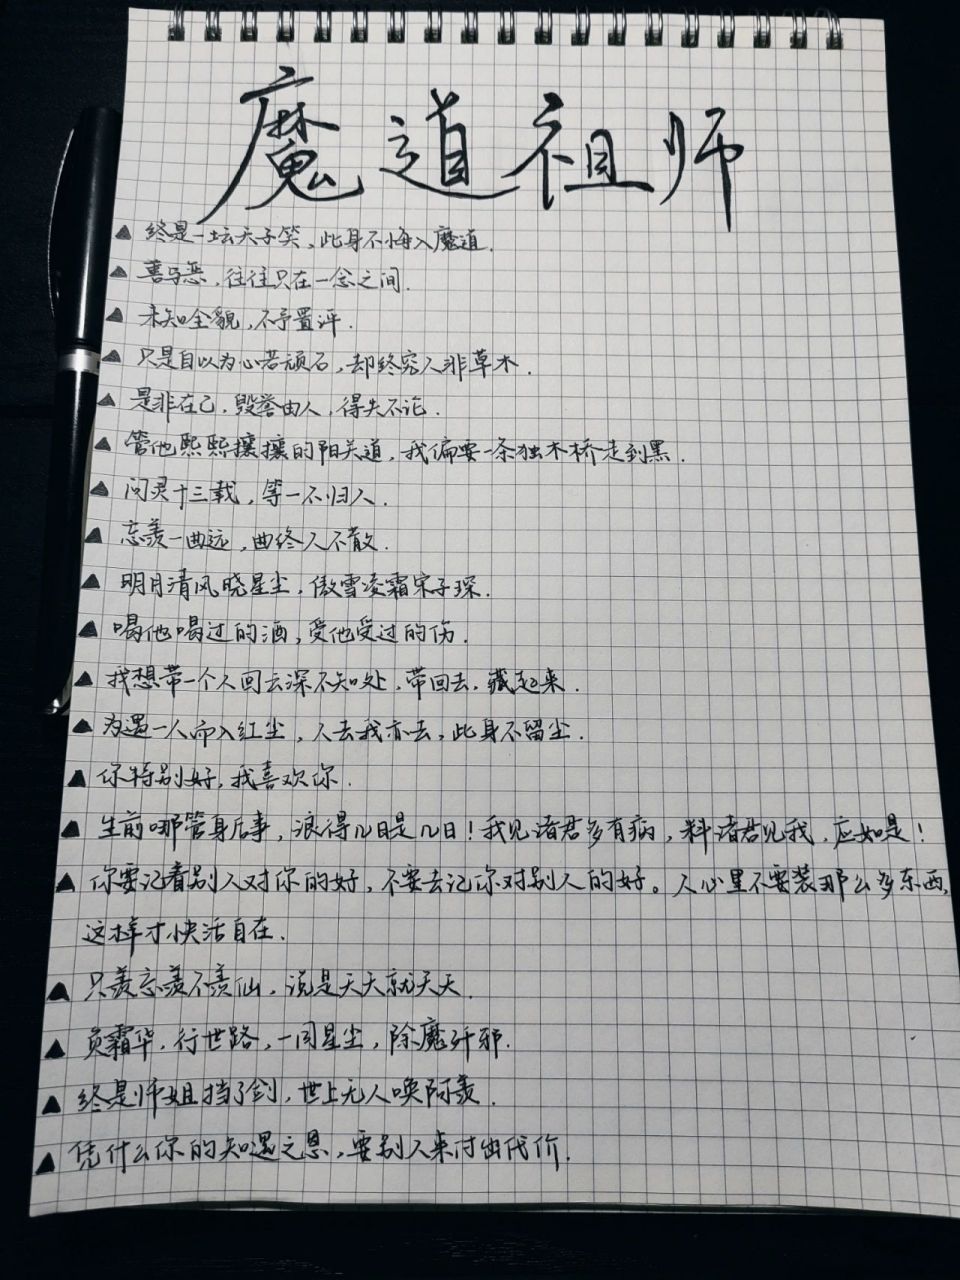 魔道祖师
▲ 终是一坛天子笑，此身不悔入魔道.
▲ 善与恶，往往只在一念之间.
▲ 未知全貌，不予置评.
▲ 只是自以为心若顽石，却终究人非草木.
▲ 是非在己，毁誉由人，得失不论.
▲ 管他熙熙攘攘的阳关道，我偏要一条独木桥走到黑.
▲ 问灵十三载，等一不归人.
▲ 忘羡一曲远，曲终人不散.
▲ 明月清风晓星尘，傲雪凌霜宋子琛.
▲ 喝他喝过的酒，受他受过的伤.
▲ 我想带一个人回云深不知处，带回去，藏起来.
▲ 为遇一人而入红尘，人去我亦去，此身不留尘.
▲ 你特别好，我喜欢你.
▲ 生前哪管身后事，浪得几日是几日！我见诸君多有病，料诸君见我，应如是！
▲ 你要记着别人对你的好，不要去记你对别人的好。人心里不要装那么多东西，
这样才快活自在.
▲ 只羡忘羡不羡仙，说是天天就天天.
▲ 负霜华，行世路，一同星尘，除魔歼邪.
▲ 终是师姐挡了剑，世上无人唤阿羡.
▲ 凭什么你的知遇之恩，要别人来付出代价.